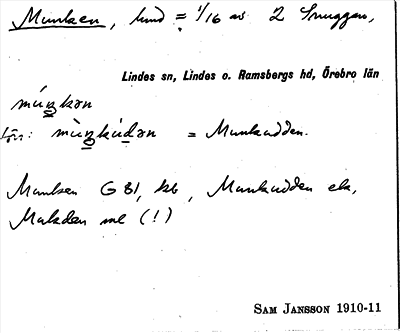 Munken, hmd = 1/16 av 2 Snuggan,
Lindes sn, Lindes o. Ramsbergs hd, Örebro län
múŋkən
mùŋkùdən = Munkudden.
Munken G 81, kb, Munkudden ek,
Makden ml (!)
SAM JANSSON 1910-11